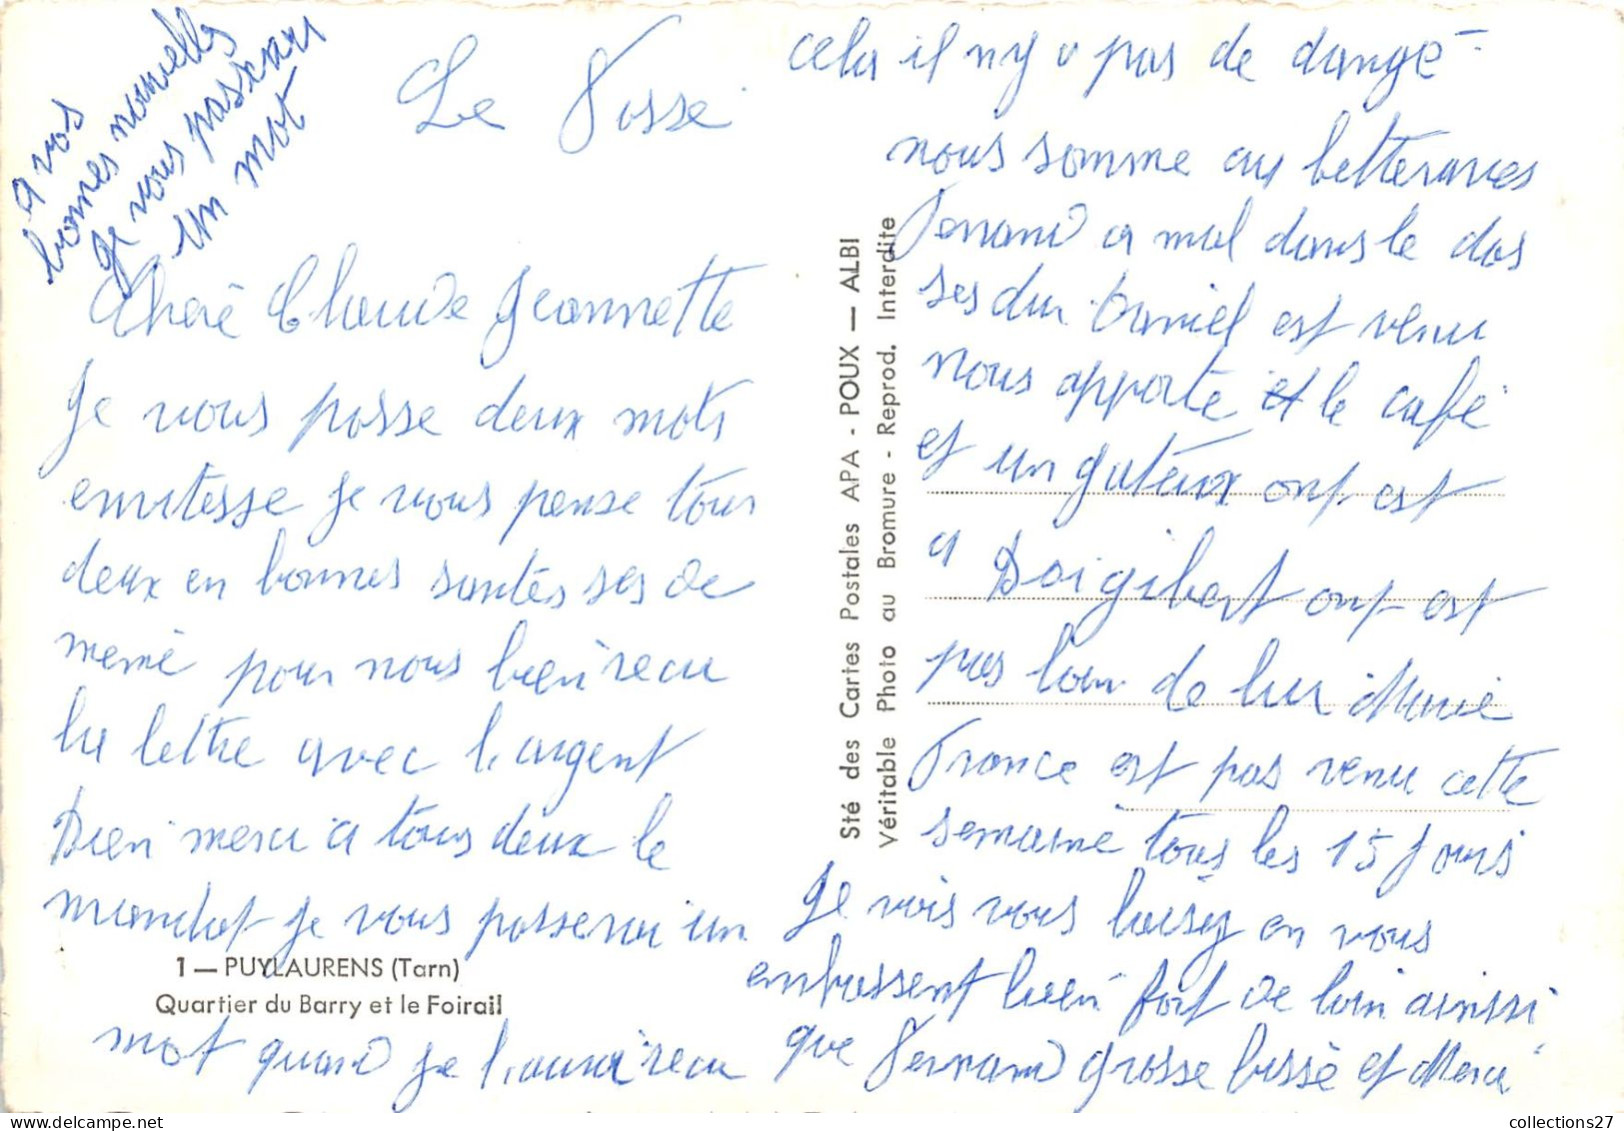 a vos
bonnes nouvelles
je vous passerai
un mot
Le Fosse
Cheré Claude Jeannette
Je vous passe deux mots
envitesse je vous pense tous
deux en bonnes santés ses de
memé pour nous bien recu
la lettre avec l'argent
Bien merci a tous deux le
mandat je vous passerai un
mot quand je l'aurai recu
1 — PUYLAURENS (Tarn)
Quartier du Barry et le Foirail
Sté des Cartes Postales APA - POUX — ALBI
Véritable Photo au Bromure - Reprod. Interdite
cela il ny a pas de dangé
nous somme au betteraves
Fernand a mal dans le dos
ses dur Daniel est venu
nous apporte et le café
et un gateaux ont est
a ont est
pas loin de lui Marie
France est pas venu cette
semaine tous les 15 jours
Je vais vous en vous
embrassent bien fort de loin ainssi
que Fernand grosse bissé et Merci
collections27